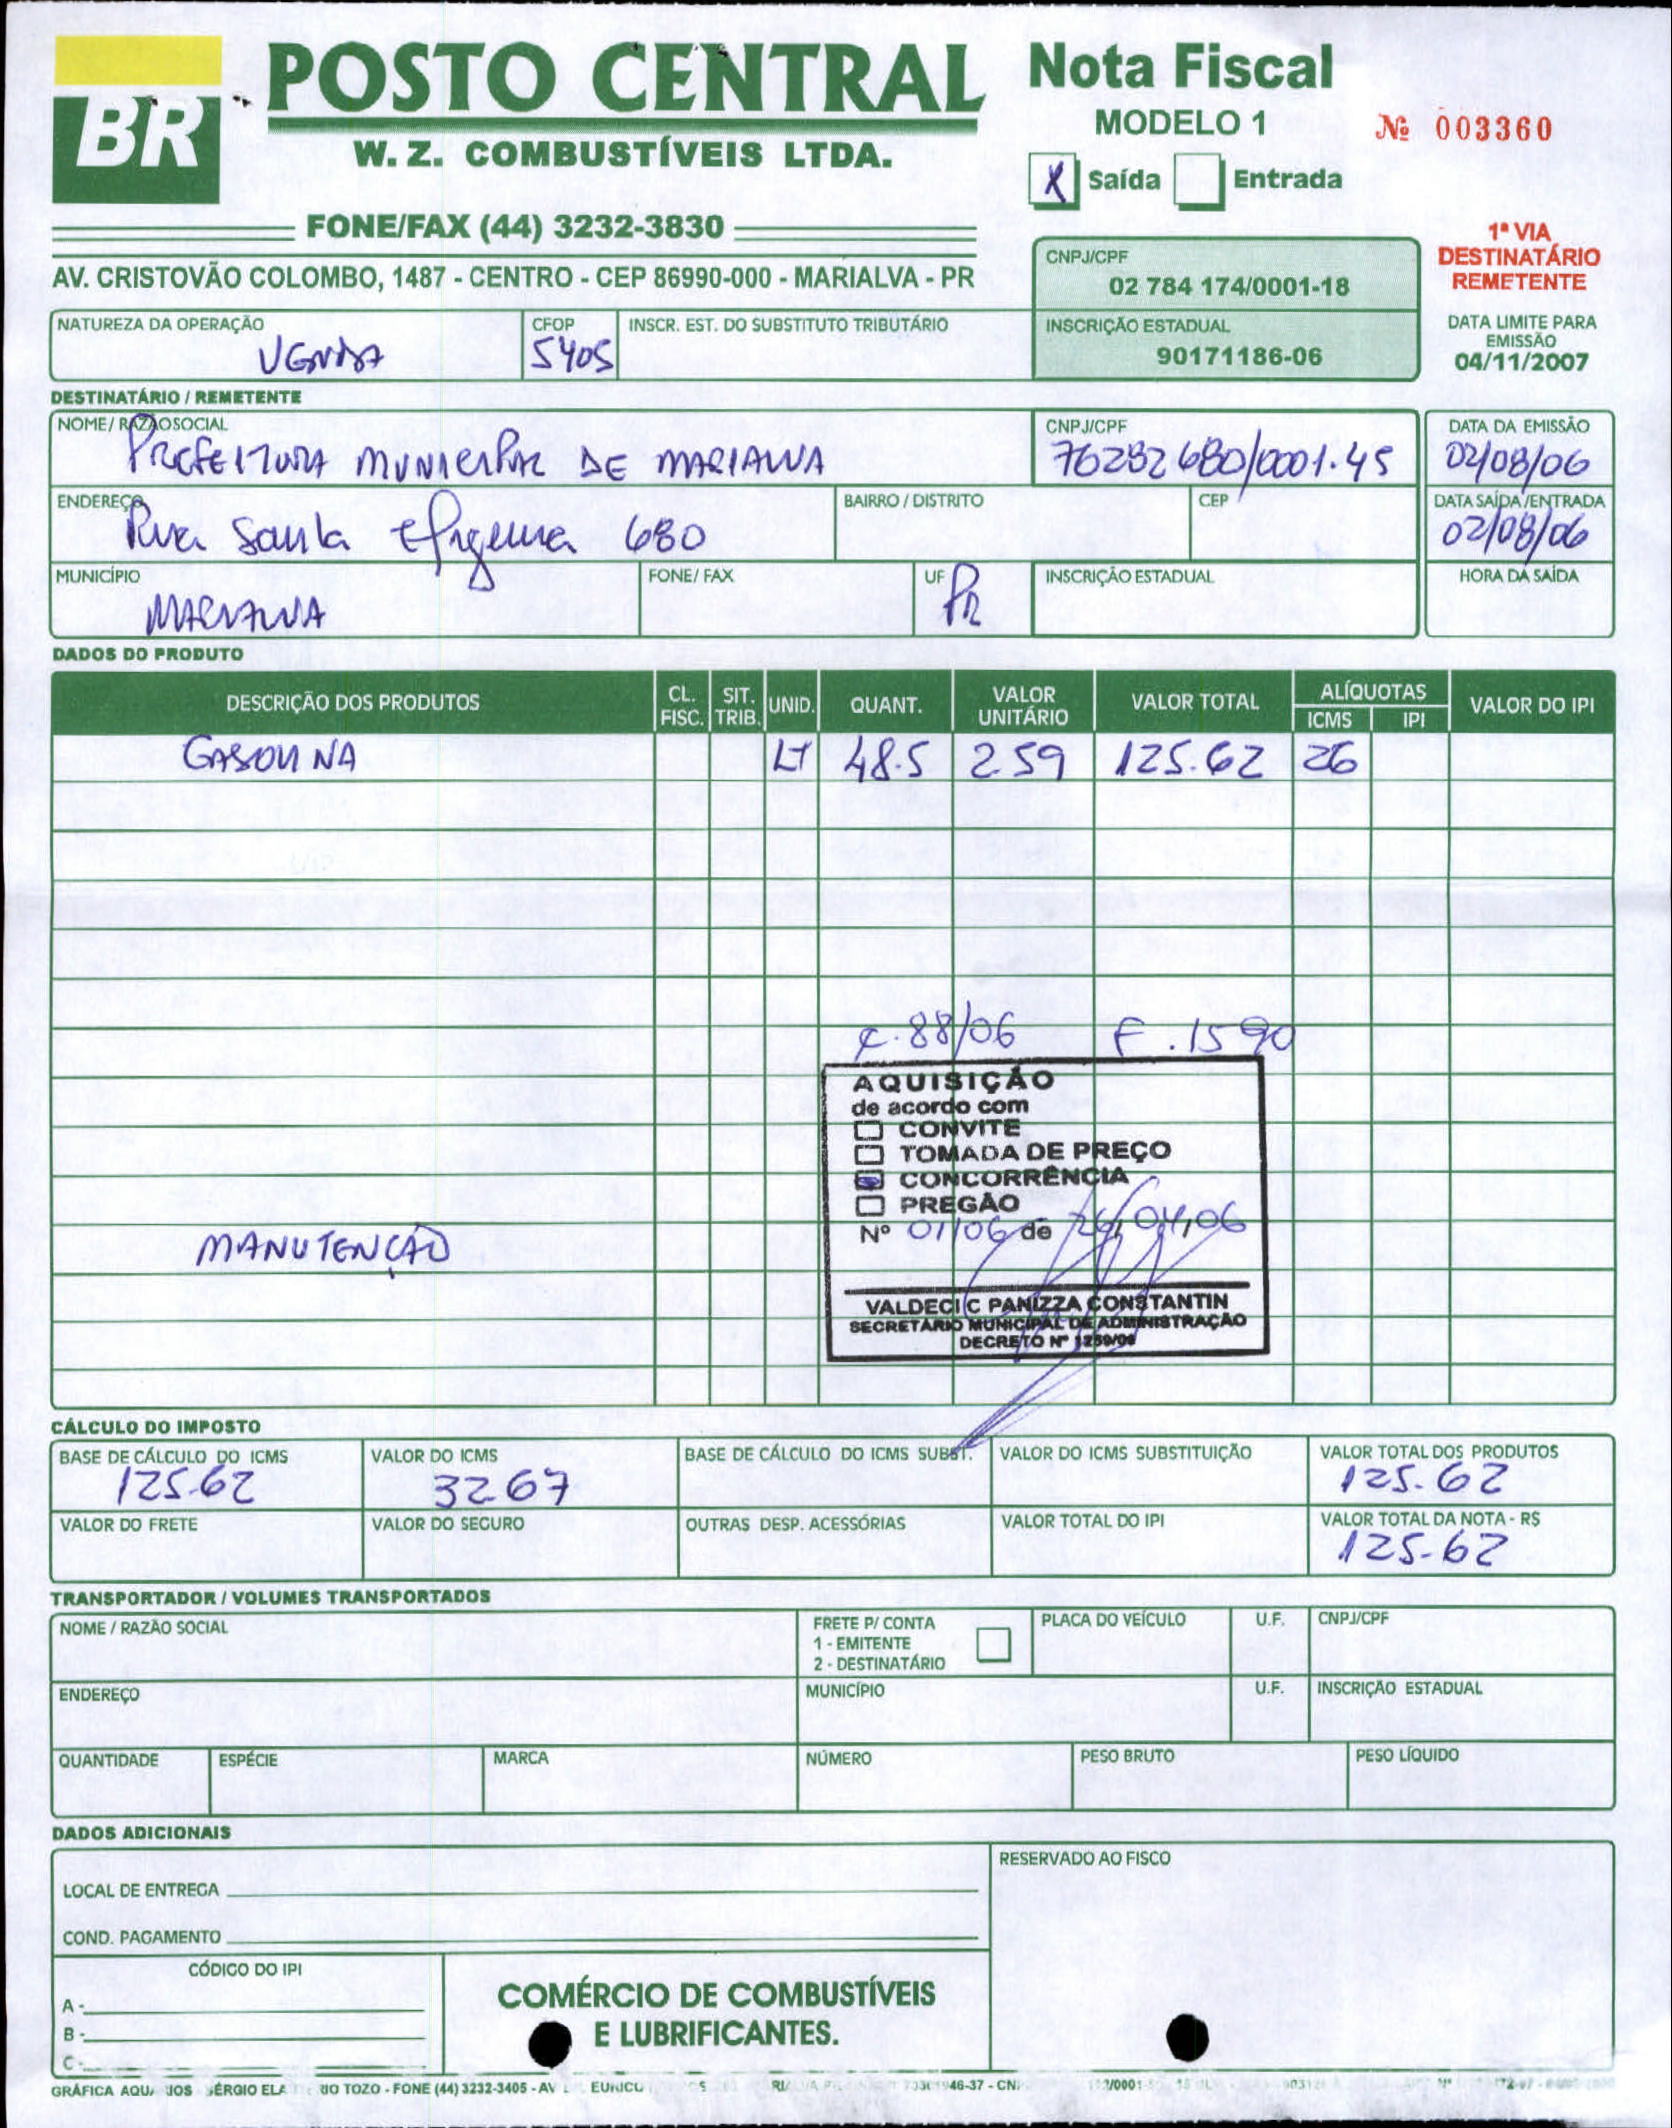 BR POSTO CENTRAL
W. Z. COMBUSTÍVEIS LTDA.
FONE/FAX (44) 3232-3830
AV. CRISTOVÃO COLOMBO, 1487 - CENTRO - CEP 86990-000 - MARIALVA - PR
Nota Fiscal
MODELO 1
Nº 003360
X Saída Entrada
1ª VIA
DESTINATÁRIO
REMETENTE
CNPJ/CPF
02 784 174/0001-18
INSCRIÇÃO ESTADUAL
90171186-06
DATA LIMITE PARA
EMISSÃO
04/11/2007
NATUREZA DA OPERAÇÃO CFOP INSCR. EST. DO SUBSTITUTO TRIBUTÁRIO
VENDA 5405
DESTINATÁRIO / REMETENTE
NOME / RAZÃO SOCIAL CNPJ/CPF DATA DA EMISSÃO
PREFEITURA MUNICIPAL DE MARIALVA 76282680/0001.45 02/08/06
ENDEREÇO BAIRRO / DISTRITO CEP DATA SAÍDA/ENTRADA
Rua Santa Efigenia 680 02/08/06
MUNICÍPIO FONE/ FAX UF INSCRIÇÃO ESTADUAL HORA DA SAÍDA
MARIALVA PR
DADOS DO PRODUTO
DESCRIÇÃO DOS PRODUTOS CL. FISC. SIT. TRIB. UNID. QUANT. VALOR UNITÁRIO VALOR TOTAL ALÍQUOTAS ICMS IPI VALOR DO IPI
GASOLINA LT 48.5 2.59 125.62 26
88/06 F. 1590
AQUISIÇÃO
de acordo com
CONVITE
TOMADA DE PREÇO
CONCORRÊNCIA
PREGÃO
Nº 01/06 de 26/04/06
MANUTENÇÃO
VALDECI C PANIZZA CONSTANTIN
SECRETARIO MUNICIPAL DE ADMINISTRAÇÃO
DECRETO Nº
CÁLCULO DO IMPOSTO
BASE DE CÁLCULO DO ICMS VALOR DO ICMS BASE DE CÁLCULO DO ICMS SUBST. VALOR DO ICMS SUBSTITUIÇÃO VALOR TOTAL DOS PRODUTOS
125.62 32.67 125.62
VALOR DO FRETE VALOR DO SEGURO OUTRAS DESP. ACESSÓRIAS VALOR TOTAL DO IPI VALOR TOTAL DA NOTA - R$
125.62
TRANSPORTADOR / VOLUMES TRANSPORTADOS
NOME / RAZÃO SOCIAL FRETE P/ CONTA PLACA DO VEÍCULO U.F. CNPJ/CPF
1 - EMITENTE
2 - DESTINATÁRIO
ENDEREÇO MUNICÍPIO U.F. INSCRIÇÃO ESTADUAL
QUANTIDADE ESPÉCIE MARCA NÚMERO PESO BRUTO PESO LÍQUIDO
DADOS ADICIONAIS
RESERVADO AO FISCO
LOCAL DE ENTREGA
COND. PAGAMENTO
CÓDIGO DO IPI
A -
B -
C -
COMÉRCIO DE COMBUSTÍVEIS
E LUBRIFICANTES.
GRÁFICA SÉRGIO TOZO - FONE (44) 3232-3405 - AV